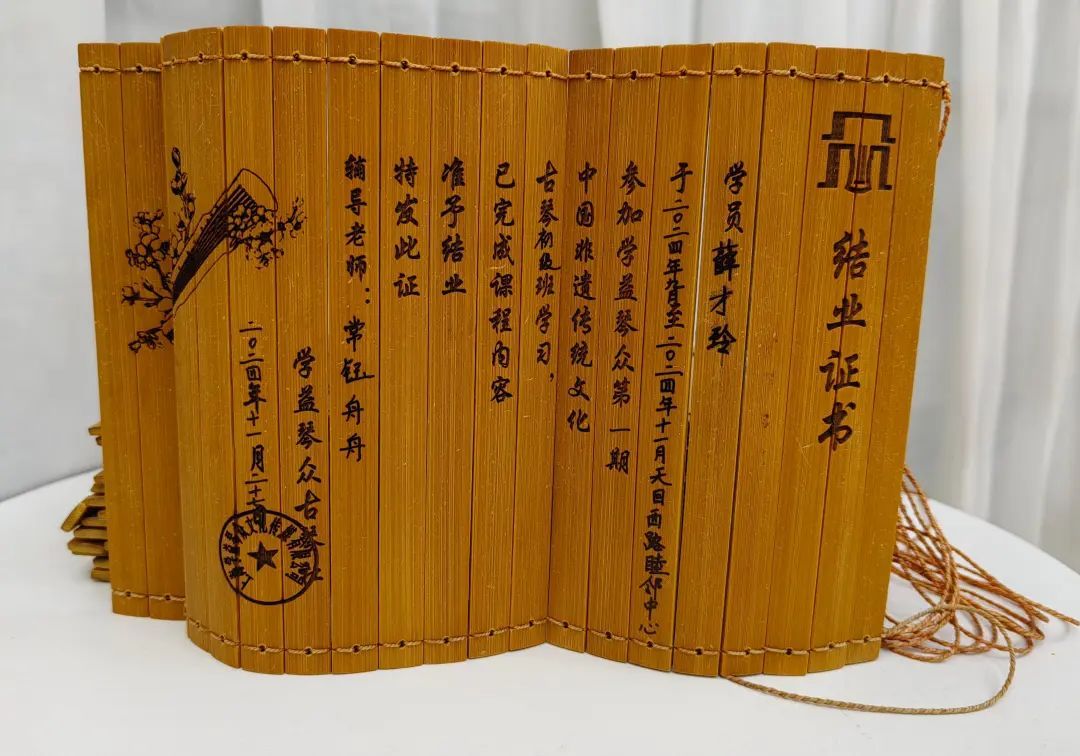 结业证书
学员薛才玲
于二〇二四年九月至二〇二四年十一月天目西路睦邻中心
参加学益琴众第一期
中国非遗传统文化
古琴初级班学习，
已完成课程内容
准予结业
特发此证
辅导老师：常钰舟舟
学益琴众古琴社
二〇二四年十一月二十七日